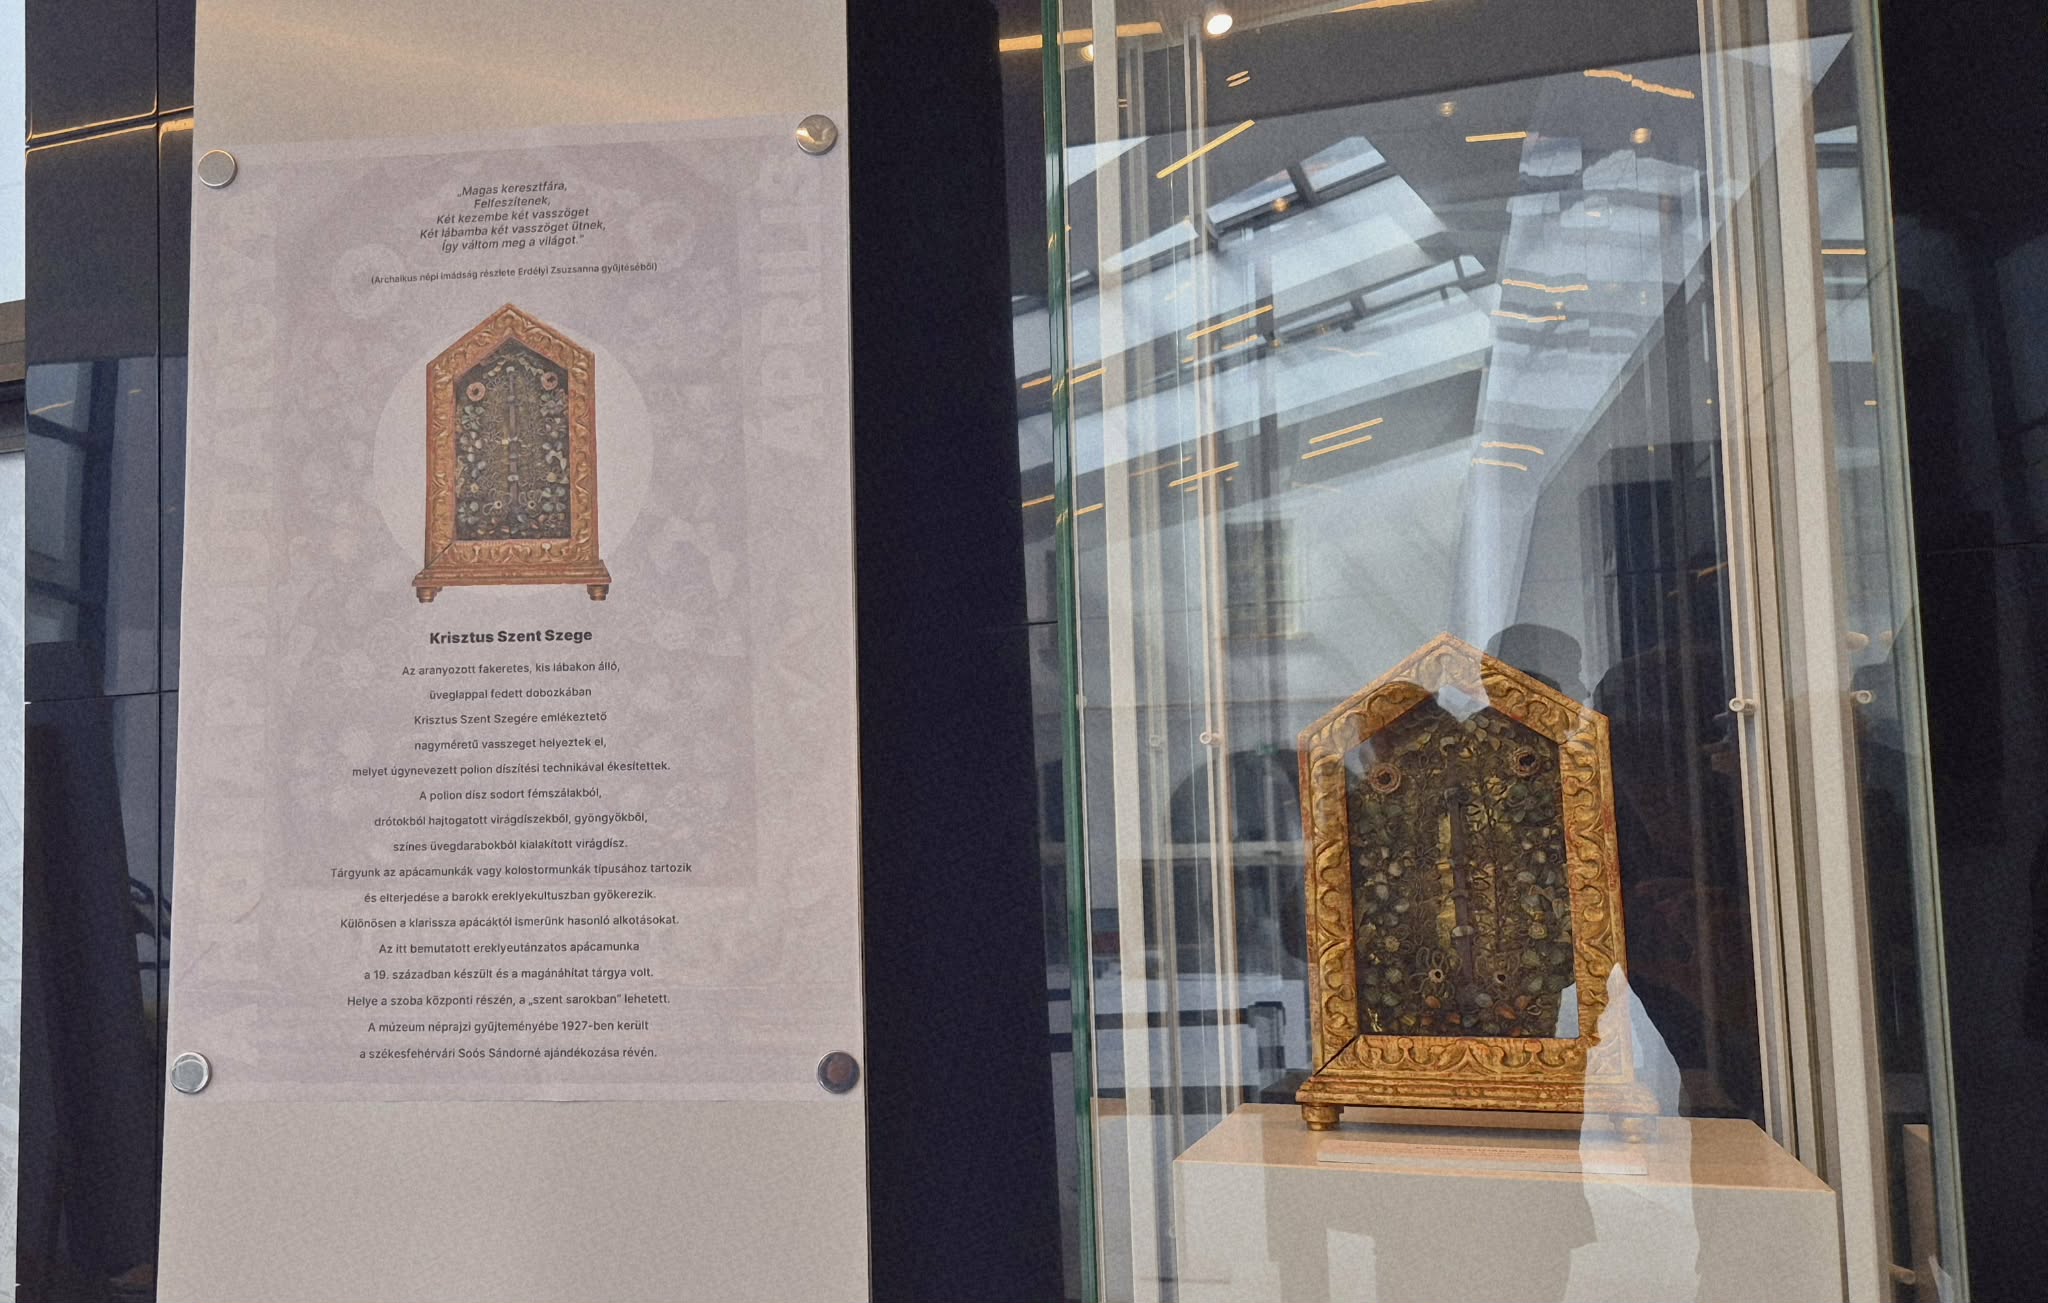 „Magas keresztfára,
Felfeszítenek,
Két kezembe két vasszöget
Két lábamba két vasszöget ütnek,
Így váltom meg a világot.”
(Archaikus népi imádság részlete Erdélyi Zsuzsanna gyűjtéséből)
Krisztus Szent Szege
Az aranyozott fakeretes, kis lábakon álló,
üveglappal fedett dobozkában
Krisztus Szent Szegére emlékeztető
nagyméretű vasszeget helyeztek el,
melyet úgynevezett polion díszítési technikával ékesítettek.
A polion dísz sodort fémszálakból,
drótokból hajtogatott virágdíszekből, gyöngyökből,
színes üvegdarabokból kialakított virágdísz.
Tárgyunk az apácamunkák vagy kolostormunkák típusához tartozik
és elterjedése a barokk ereklyekultuszban gyökerezik.
Különösen a klarissza apácáktól ismerünk hasonló alkotásokat.
Az itt bemutatott ereklyeutánzatos apácamunka
a 19. században készült és a magánáhítat tárgya volt.
Helye a szoba központi részén, a „szent sarokban” lehetett.
A múzeum néprajzi gyűjteményébe 1927-ben került
a székesfehérvári Soós Sándorné ajándékozása révén.